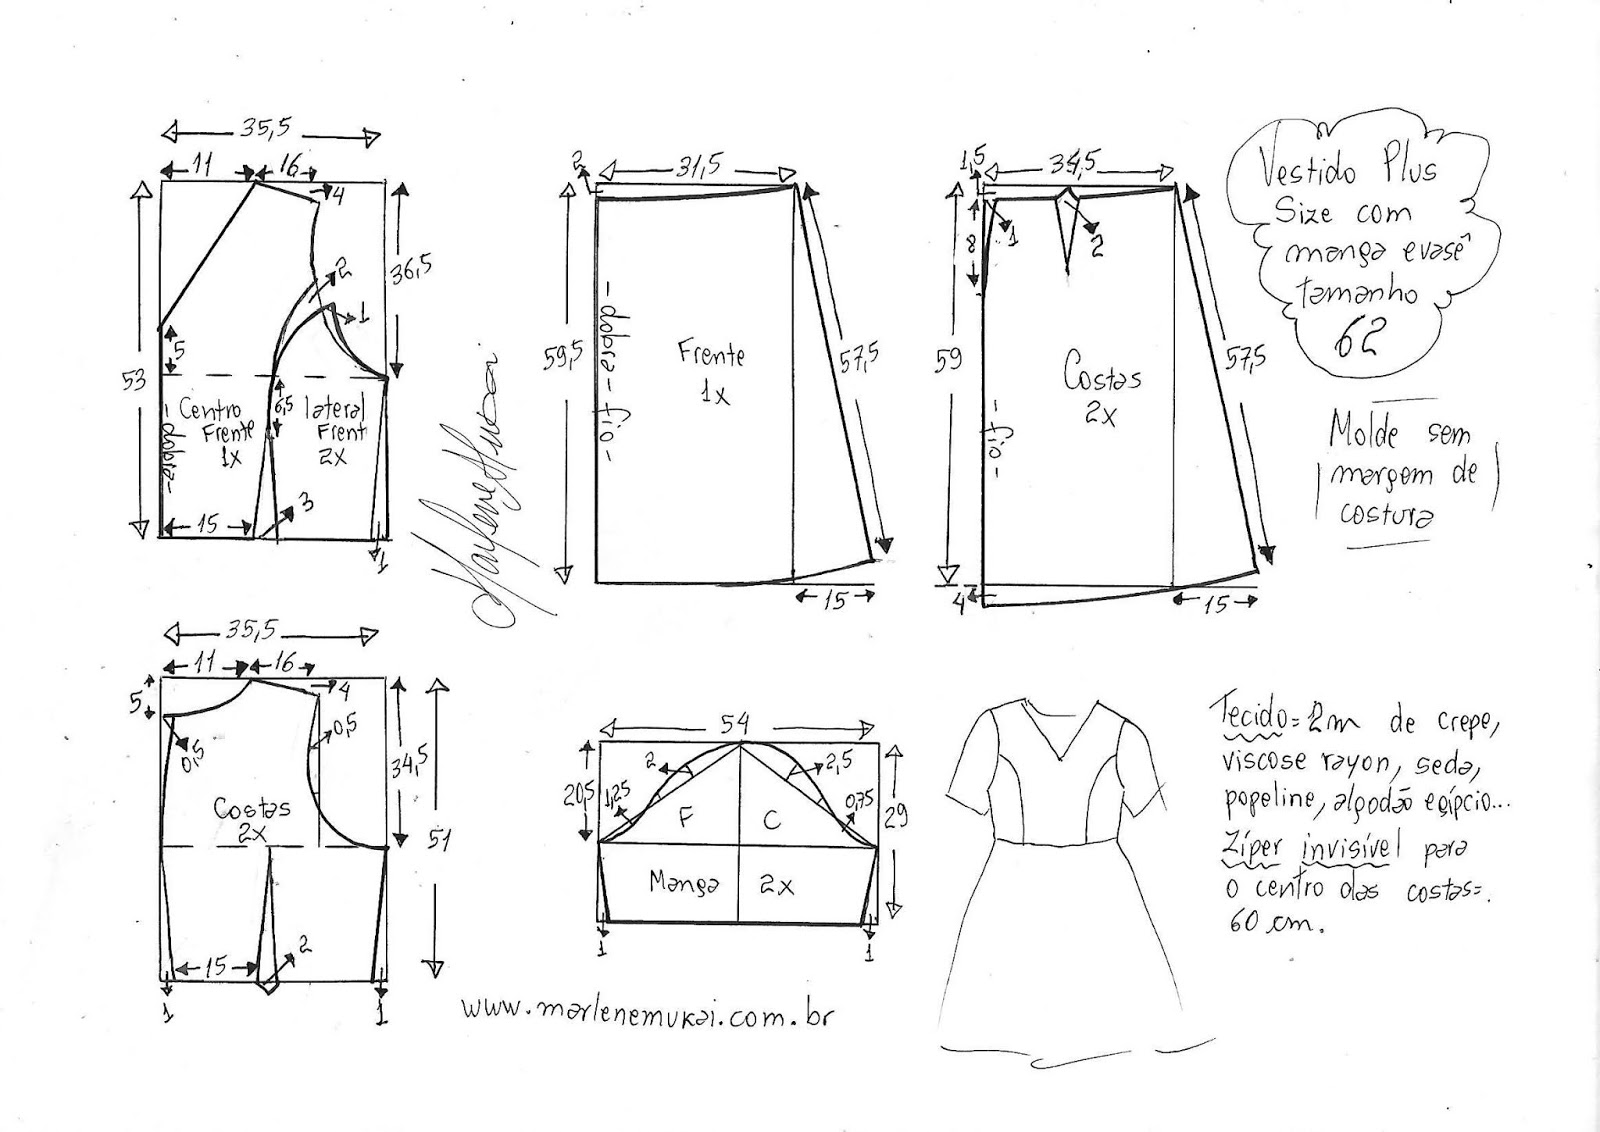 35,5
11
16
4
53
36,5
2
1
5
6,5
Centro
Frente
1x
lateral
Frent
2x
- dobra -
15
3
1
Marlene Mukai
2
31,5
59,5
- dobra - fio -
Frente
1x
57,5
15
1,5
8
1
2
59
- fio -
Costas
2x
57,5
4
15
Vestido Plus
Size com
manga evasê
tamanho
62
Molde sem
margem de
costura
35,5
11
16
4
5
0,5
0,5
34,5
51
Costas
2x
15
2
1
1
54
20,5
2
2,5
1,25
0,75
29
F
C
Manga
2x
1
1
www.marlenemukai.com.br
Tecido = 2m de crepe,
viscose rayon, seda,
popeline, algodão egípcio...
Zíper invisível para
o centro das costas =.
60 cm.